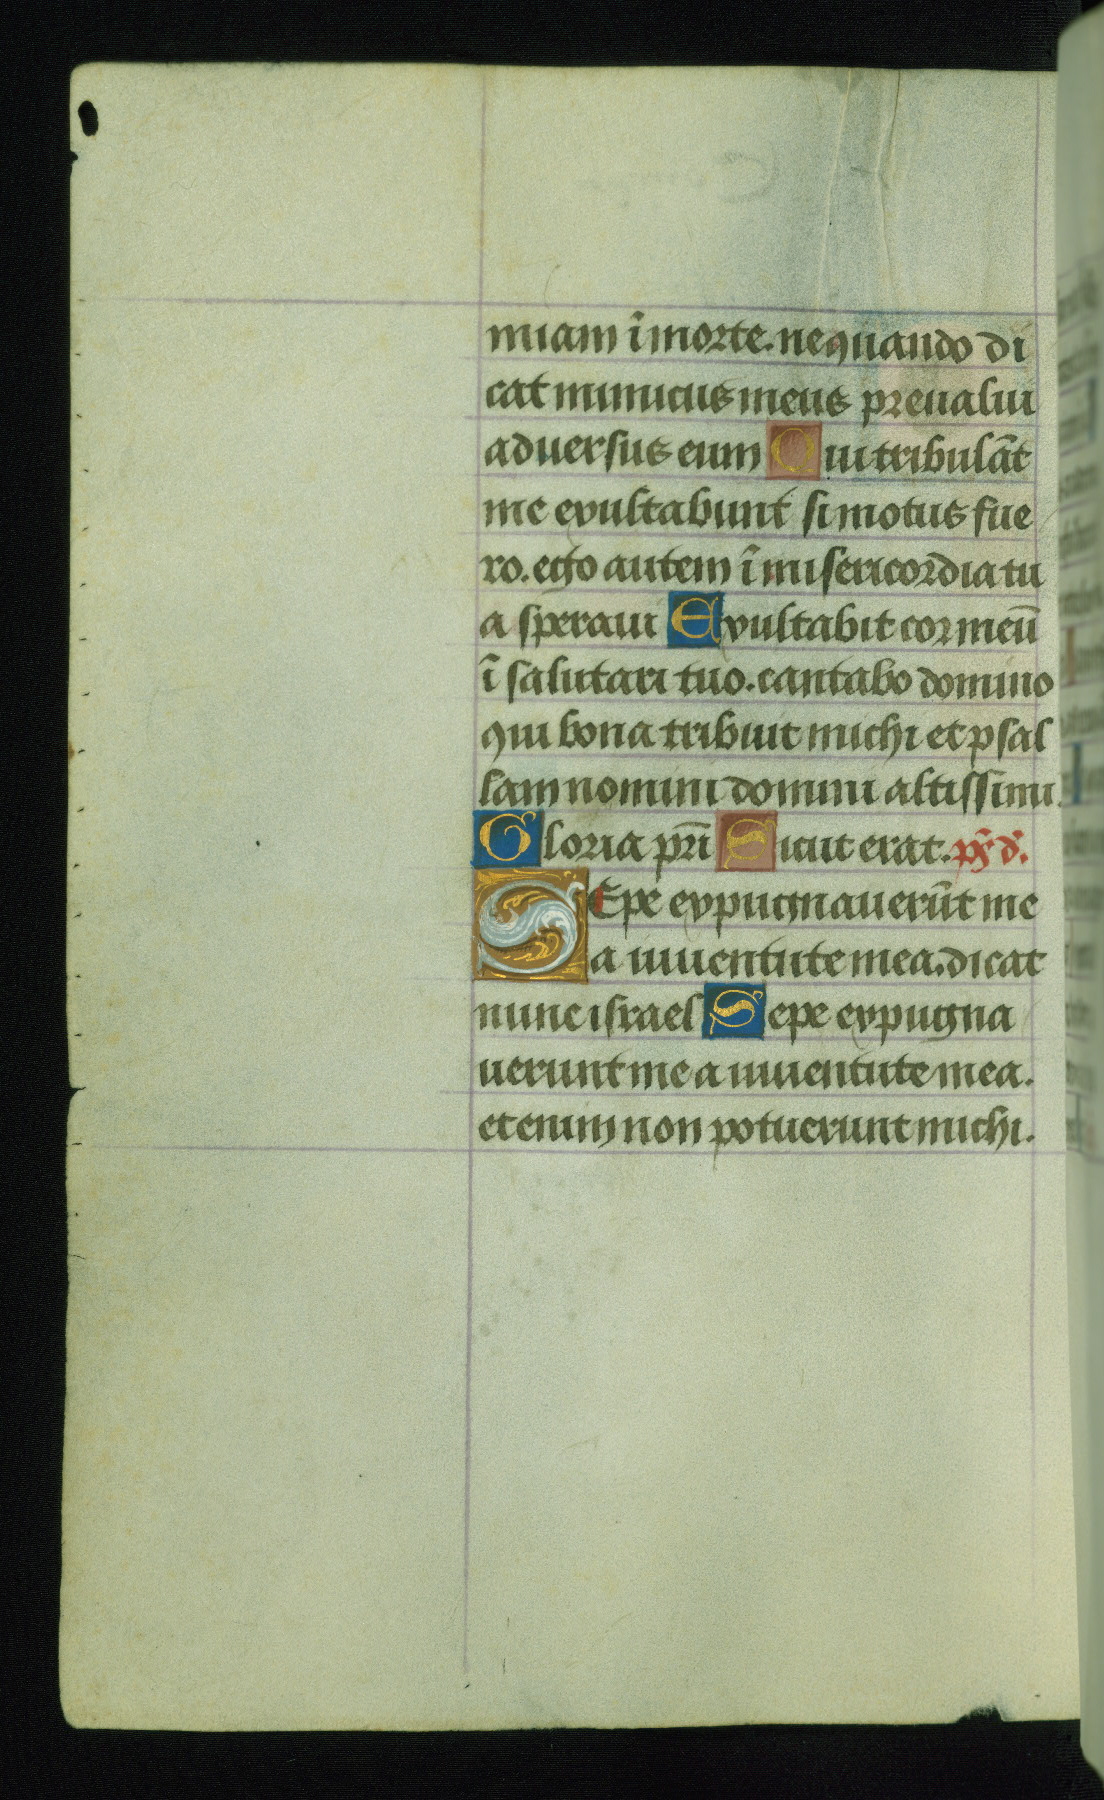 miam ī morte. nequando di
cat inimicus meus preualui
aduersus eum Qui tribulāt
me exultabunt si motus fue
ro. ego autem ī misericordia tu
a speraui Exultabit cor meū
ī salutari tuo. cantabo domino
qui bona tribuit michi et psal
lam nomini domini altissimi.
Gloria pr̄i Sicut erat. p̄s d̄.
SEpe expugnauerūt me
a iuuentute mea. dicat
nunc israel Sepe expugna
uerunt me a iuuentute mea.
etenim non potuerunt michi.